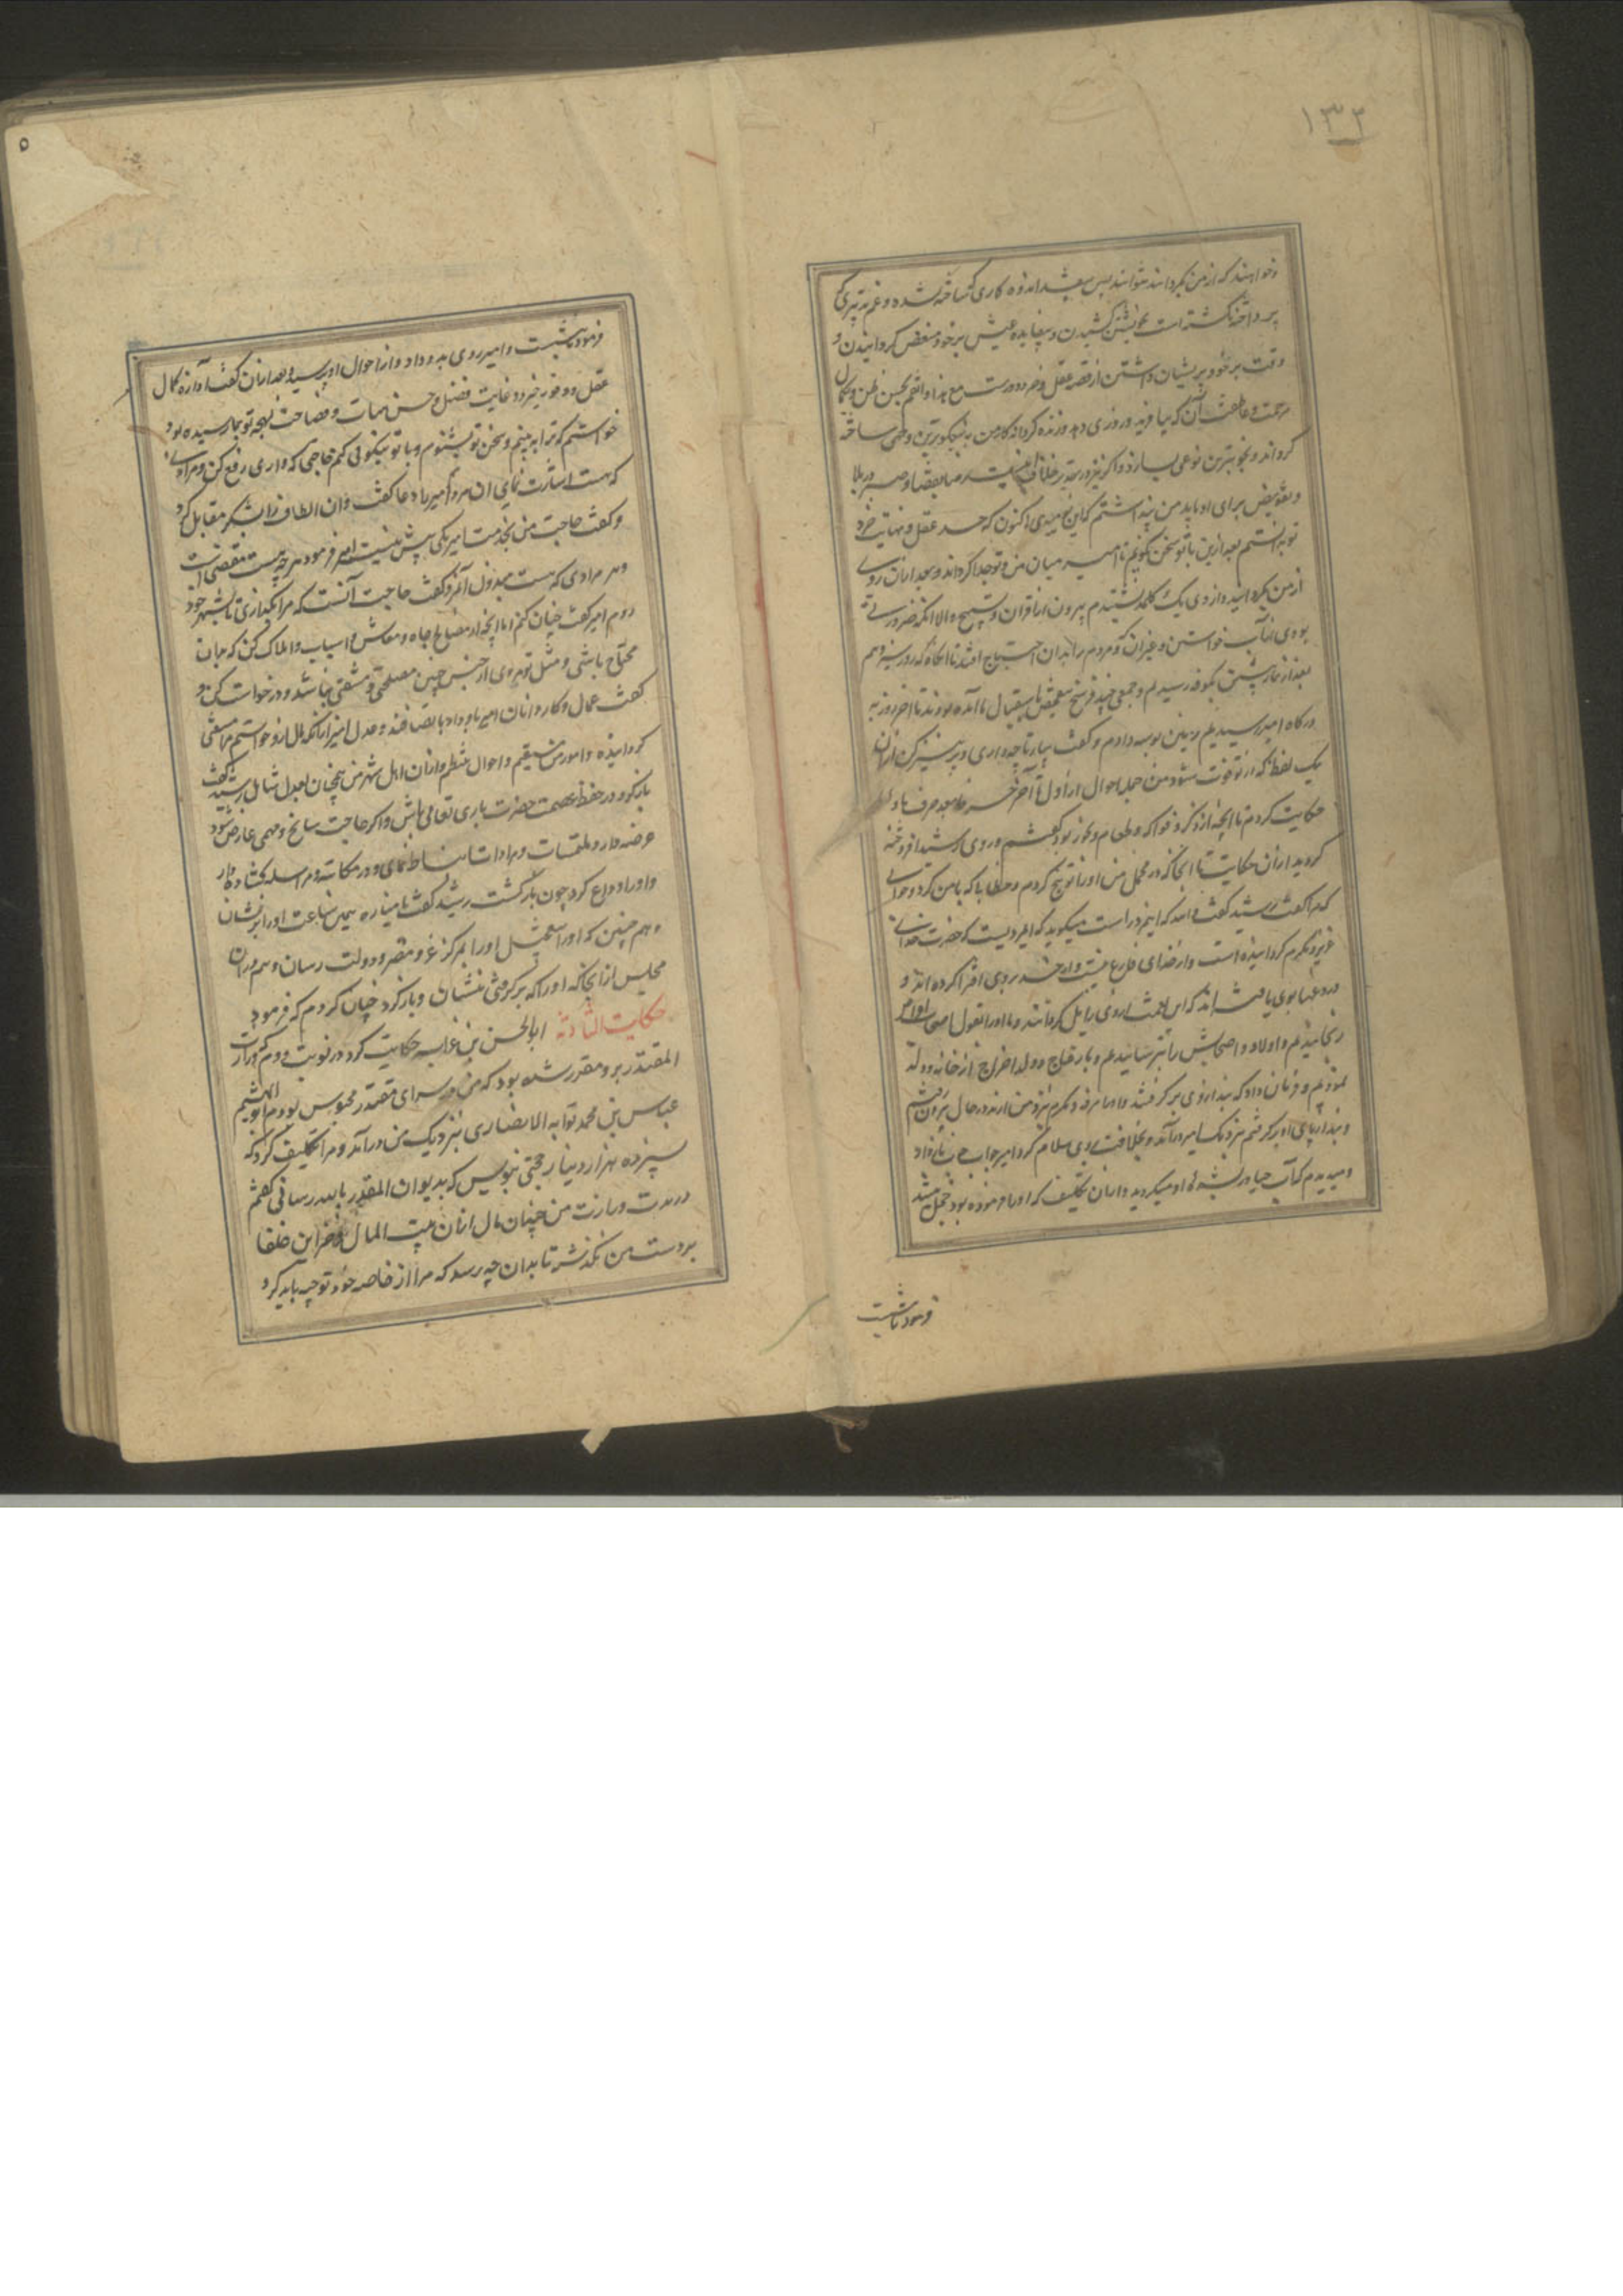 ۱۳۲
و خواهند که از من بگردانند نتوانند پس بیشتر اندوه کاری که ساخته نشده و غم تدبیری که
پرداخته نگشته است بخویشتن کشیدن و بیفایده عیش بر خود منغص گردانیدن و
وقت بر خود پریشان داشتن از قضیه عقل و خرد دورست مع هذا واثقم بحسن ظن و بکمال
مرحمت و عاطفت آن که بیافریند و روزی دهد و زنده گرداند کار من به نیکوترین وجهی ساخته
گرداند و بخوبترین نوعی بسازد و اگر نیز در تقدیر خلاف این است رضا بقضا و صبر در بلا
و تفویض برای او باید من پنداشتم که این نمیدانی اکنون که حد عقل و نهایت خرد
تو بدانستم بعد ازین با تو سخن نگویم تا امیر میان من و تو جدا گرداند و بعد از آن روی
از من بگردانید و از وی یک کلمه نشنیدم بیرون از قرآن و تسبیح الا آنکه ضرورتی
بودی از آب خواستن و غیر آن که مردم را بدان احتیاج افتد تا آنگاه که روز سیزدهم
بعد از نماز پیشین بکوفه رسیدیم و جمعی چند فرسخ باستقبال ما آمده بودند تا آخر روز به
درگاه امیر رسیدیم زمین بوسه دادم و گفت بیار تا چه داری و پرهیز کن از آن
یک لفظ که از تو فوت شود من جمله احوال از اول تا آخر
حکایت کردم تا آنچه از ذکر فواکه و طعام و بخور بود گفتم و روی رشید افروخته
گردید از آن حکایت تا آنجا که در محمل من او را توبیخ کردم و خطابها که با من کرد و جوابی
که مرا گفت رشید گفت والله که این مرد راست میگوید که این مردیست که حضرت خدای
عزیز و مکرم گردانیده است و از خدای فارغ نیست و از حسد بر وی افترا کرده اند و
دروغها بر وی بافته اند که این نعمت از وی زایل گردانند و ما او را بقول اصحاب اغراض
رنجانیدیم و اولاد و اصحابش را بترسانیدیم و بازعاج دولد اخراج از خانه و ولد
نمودیم و فرمان داد که بند از وی برگرفتند و او را مرفه و مکرم نزد من آرند در حال بیرون رفتم
و بند از پای او برگرفتم نزدیک امیر درآمد و بخلافت بر وی سلام کرد امیر جواب باز داد
و میدیدم که آب حیا در بشره او میگردید و از آن تکلیف که او را فرموده بود خجل میشد
فرمود تا بنشست
۵
فرمود تا بنشست و امیر روی بدو داد و از احوال او پرسید و بعد از آن گفت آوازه کمال
عقل و وفور خرد و غایت فضل و حسن هیات و فصاحت لهجه تو بما رسیده بود
خواستم که ترا ببینم و سخن تو بشنوم و با تو نیکوئی کنم حاجتی که داری رفع کن و مرادی
که هست اشارت نمای آن مرد امیر را دعا گفت و آن الطاف را بشکر مقابل کرد
و گفت حاجت من بخدمت امیر یکی بیش نیست امیر فرمود هر چه هست مقضی است
و هر مرادی که هست مبذول آنمرد گفت حاجت آنست که مرا بگذاری تا بشهر خود
روم امیر گفت چنان کنم اما آنچه از مصالح جاه و معاش و اسباب و املاک کن که بدان
محتاج باشی و مثل تو مردی از جنس چنین مصلحتی و مشقتی نباشد و درخواست کن و
گفت عمال و کاردانان امیر با داد با نصافند و عدل امیر از آنکه مال ازو خواستم مرا مستغنی
گردانیده و امور من مستقیم و احوال منتظم و از آن اهل شهر من همچنان بعدل شامل رشید گفت
بازگرد در حفظ و عصمت حضرت باری تعالی باش و اگر حاجت سانح و مهمی عارض شود
عرضه دار و ملتمسات و مرادات انبساط نمای و در مکاتبه و مراسله گشاده دار
و او را وداع کرد چون بازگشت رشید گفت یا مناره همین ساعت او را برنشان
و هم چنین که آوردستی اورا بمرکز عز و مقر دولت رسان و هم در آن
مجلس از آنجا که او را که برگرفتی بنشان و بازگرد چنان کردم که فرمود
حکایت الثالثة ابوالحسن بن غرابه حکایت کرد در نوبت دوم که وزارت
المقتدر برو مقرر شده بود که من در سرای مقتدر محبوس بودم ابوالهیثم
عباس بن محمد ثوابه الانصاری نزدیک من درآمد و مرا تکلیف کرد که
سیزده هزار دینار حجتی بنویس که بدیوان المقتدر بالله رسانی گفتم
در مدت وزارت من چندان مال از آن بیت المال و خزاین خلفا
بر دست من نگذشت تا بدان چه رسد که مرا از خاصه خود توجیه باید کرد